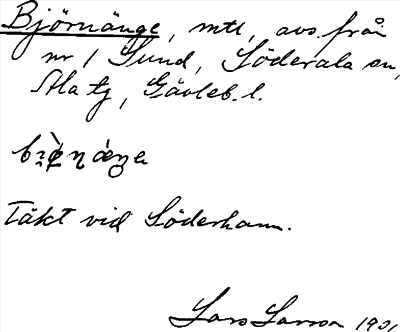 Björnänge, mtl, avs. från
nr 1 Sund, Söderala sn,
Ala tg, Gävleb. l.
Täkt vid Söderhamn.
Lars Larson